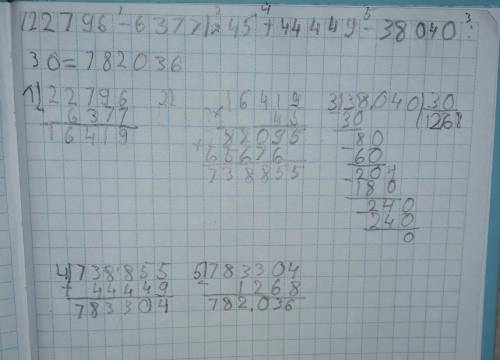 (22796-6377)×45+44449-38040:
30=782036
1) 22796
- 6377
16419
2) 16419
× 45
+ 82095
65676
738855
3) 38040 30
- 30 1268
- 80
60
- 204
180
- 240
240
0
4) 738855
+ 44449
783304
5) 783304
- 1268
782.036